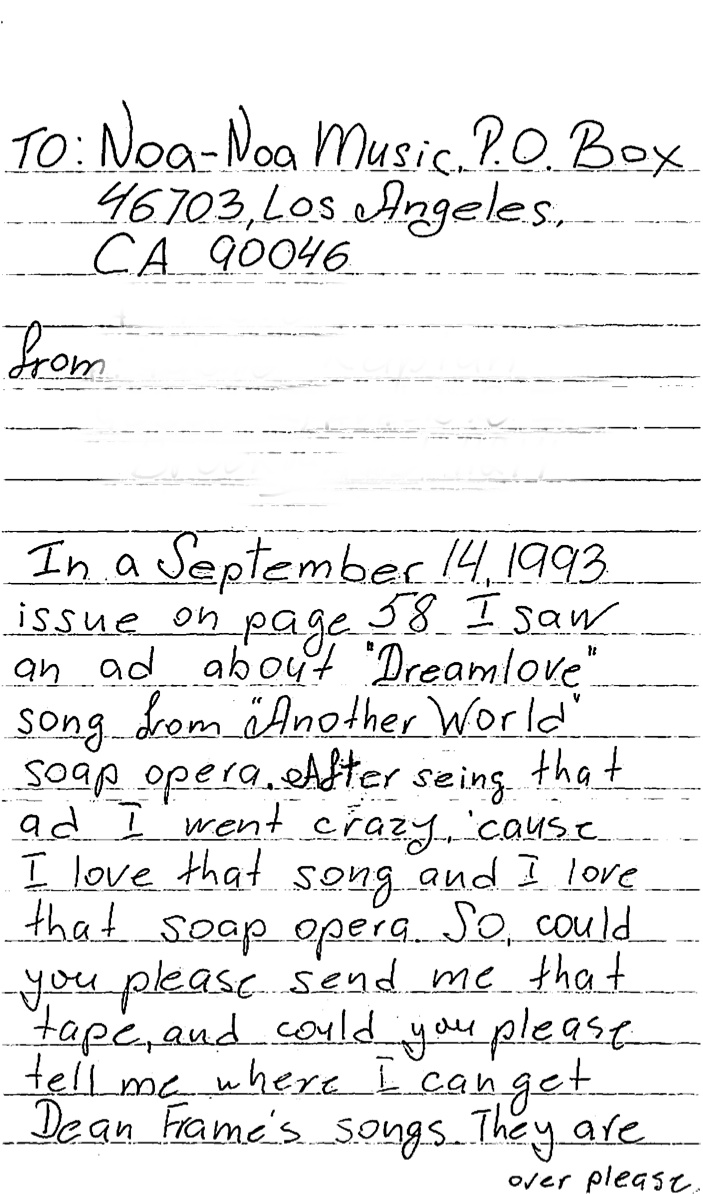 TO: Noa-Noa Music, P.O. Box
46703, Los Angeles,
CA 90046
from
In a September 14, 1993
issue on page 58 I saw
an ad about "Dreamlove"
song from "Another World"
soap opera. After seing that
ad I went crazy, 'cause
I love that song and I love
that soap opera. So, could
you please send me that
tape, and could you please
tell me where I can get
Dean Frame's songs. They are
over please.